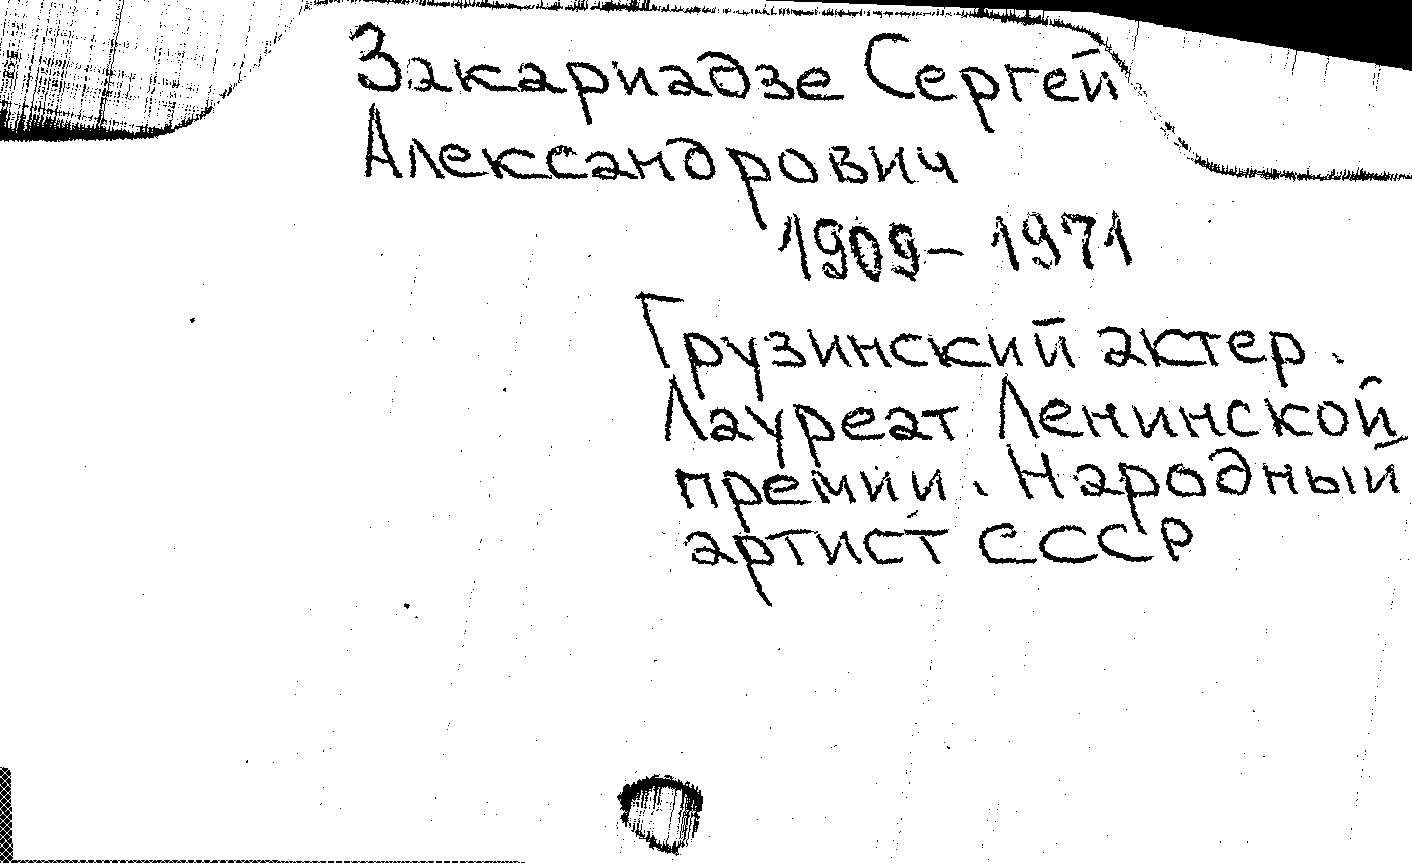 Закариадзе Сергей
Александрович
1909 - 1971
Грузинский актер.
Лауреат Ленинской
премии. Народный
артист СССР